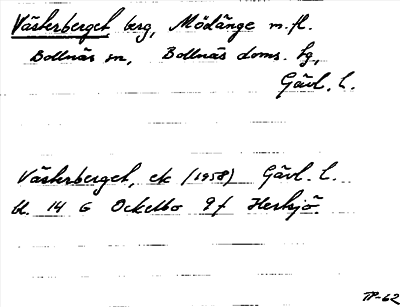 Västerberget berg, Mödänge m.fl.
Bollnäs sn, Bollnäs doms. tg,
Gävl. l.
Västerberget, ek (1958) Gävl. l.
bl. 14 G Ockelbo 9f Herksjö.
TP-62